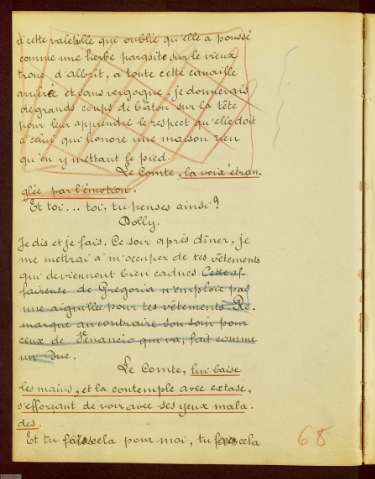 à cette valetaille que oublie qu'elle a poussé
comme une herbe parasite sur le vieux
tronc d'Albrit, à toute cette canaille
arriérée et sans vergogne, je donnerais
de grands coups de bâton sur la tête
pour leur apprendre le respect qu'elle doit
à celui qui honore une maison rien
qu'en y mettant le pied.
Le Comte, la voix étran
glée par l'émotion.
Et toi... toi, tu penses ainsi?
Dolly.
Je dis et je fais. Ce soir après dîner, je
me mettrai à m'occuper de tes vêtements
qui deviennent bien caducs Cette af
faireuse de Gregoria n'emploie pas
une aiguillée pour tes vêtements Re
marque au contraire son soin pour
ceux de Venancio qui va, fait comme
un Duc.
Le Comte, lui baise
les mains, et la contemple avec extase,
s'efforçant de voir avec ses yeux mala.
des.
Et tu fais cela pour moi, tu feras cela
68